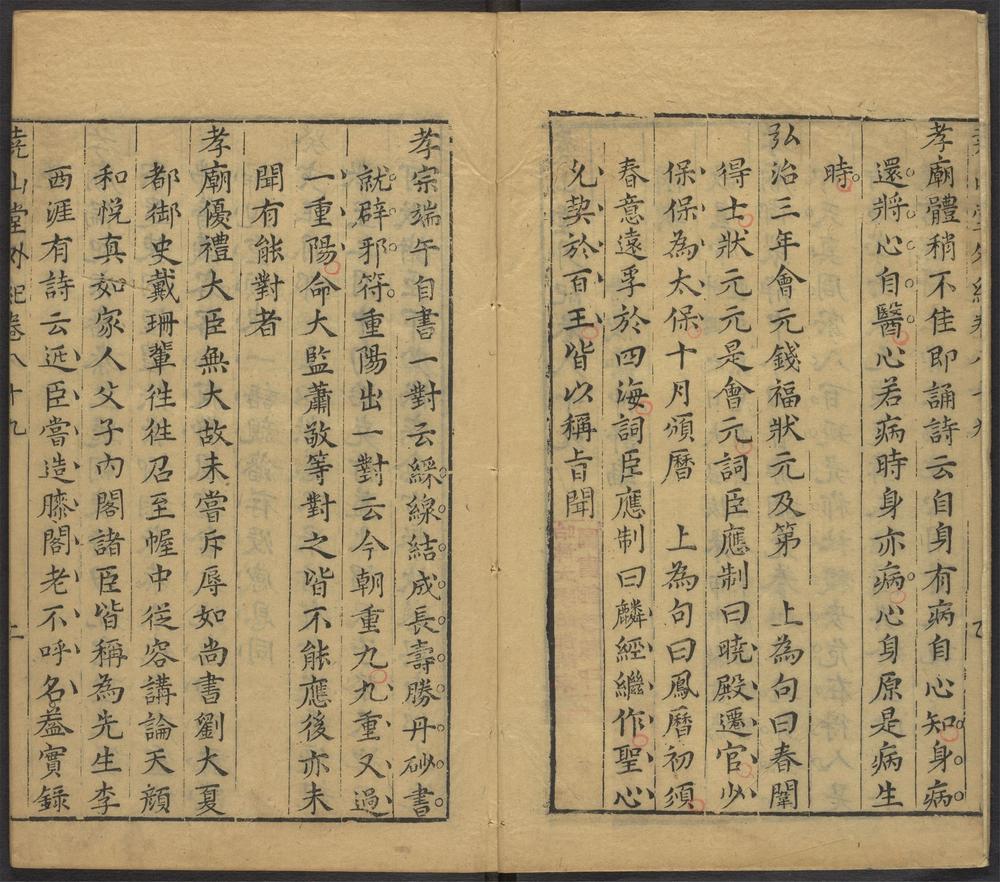 孝廟體稍不佳即誦詩云自身有病自心知身病
還將心自醫心若病時身亦病心身原是病生
時
弘治三年會元錢福狀元及第 上為句曰春闈
得士狀元元是會元詞臣應制曰曉殿遷官少
保保為太保十月頒曆 上為句曰鳳曆初須
春意遠孚於四海詞臣應制曰麟經繼作聖心
允契於百王皆以稱旨聞
孝宗端午自書一對云綵線結成長壽勝丹砂書
就辟邪符重陽出一對云今朝重九九重又過
一重陽命大監蕭敬等對之皆不能應後亦未
聞有能對者
孝廟優禮大臣無大故未嘗斥辱如尚書劉大夏
都御史戴珊輩徃徃召至幄中從容講論天顏
和悅真如家人父子內閣諸臣皆稱為先生李
西涯有詩云近臣嘗造膝閣老不呼名葢實錄
堯山堂外紀卷八十九 二